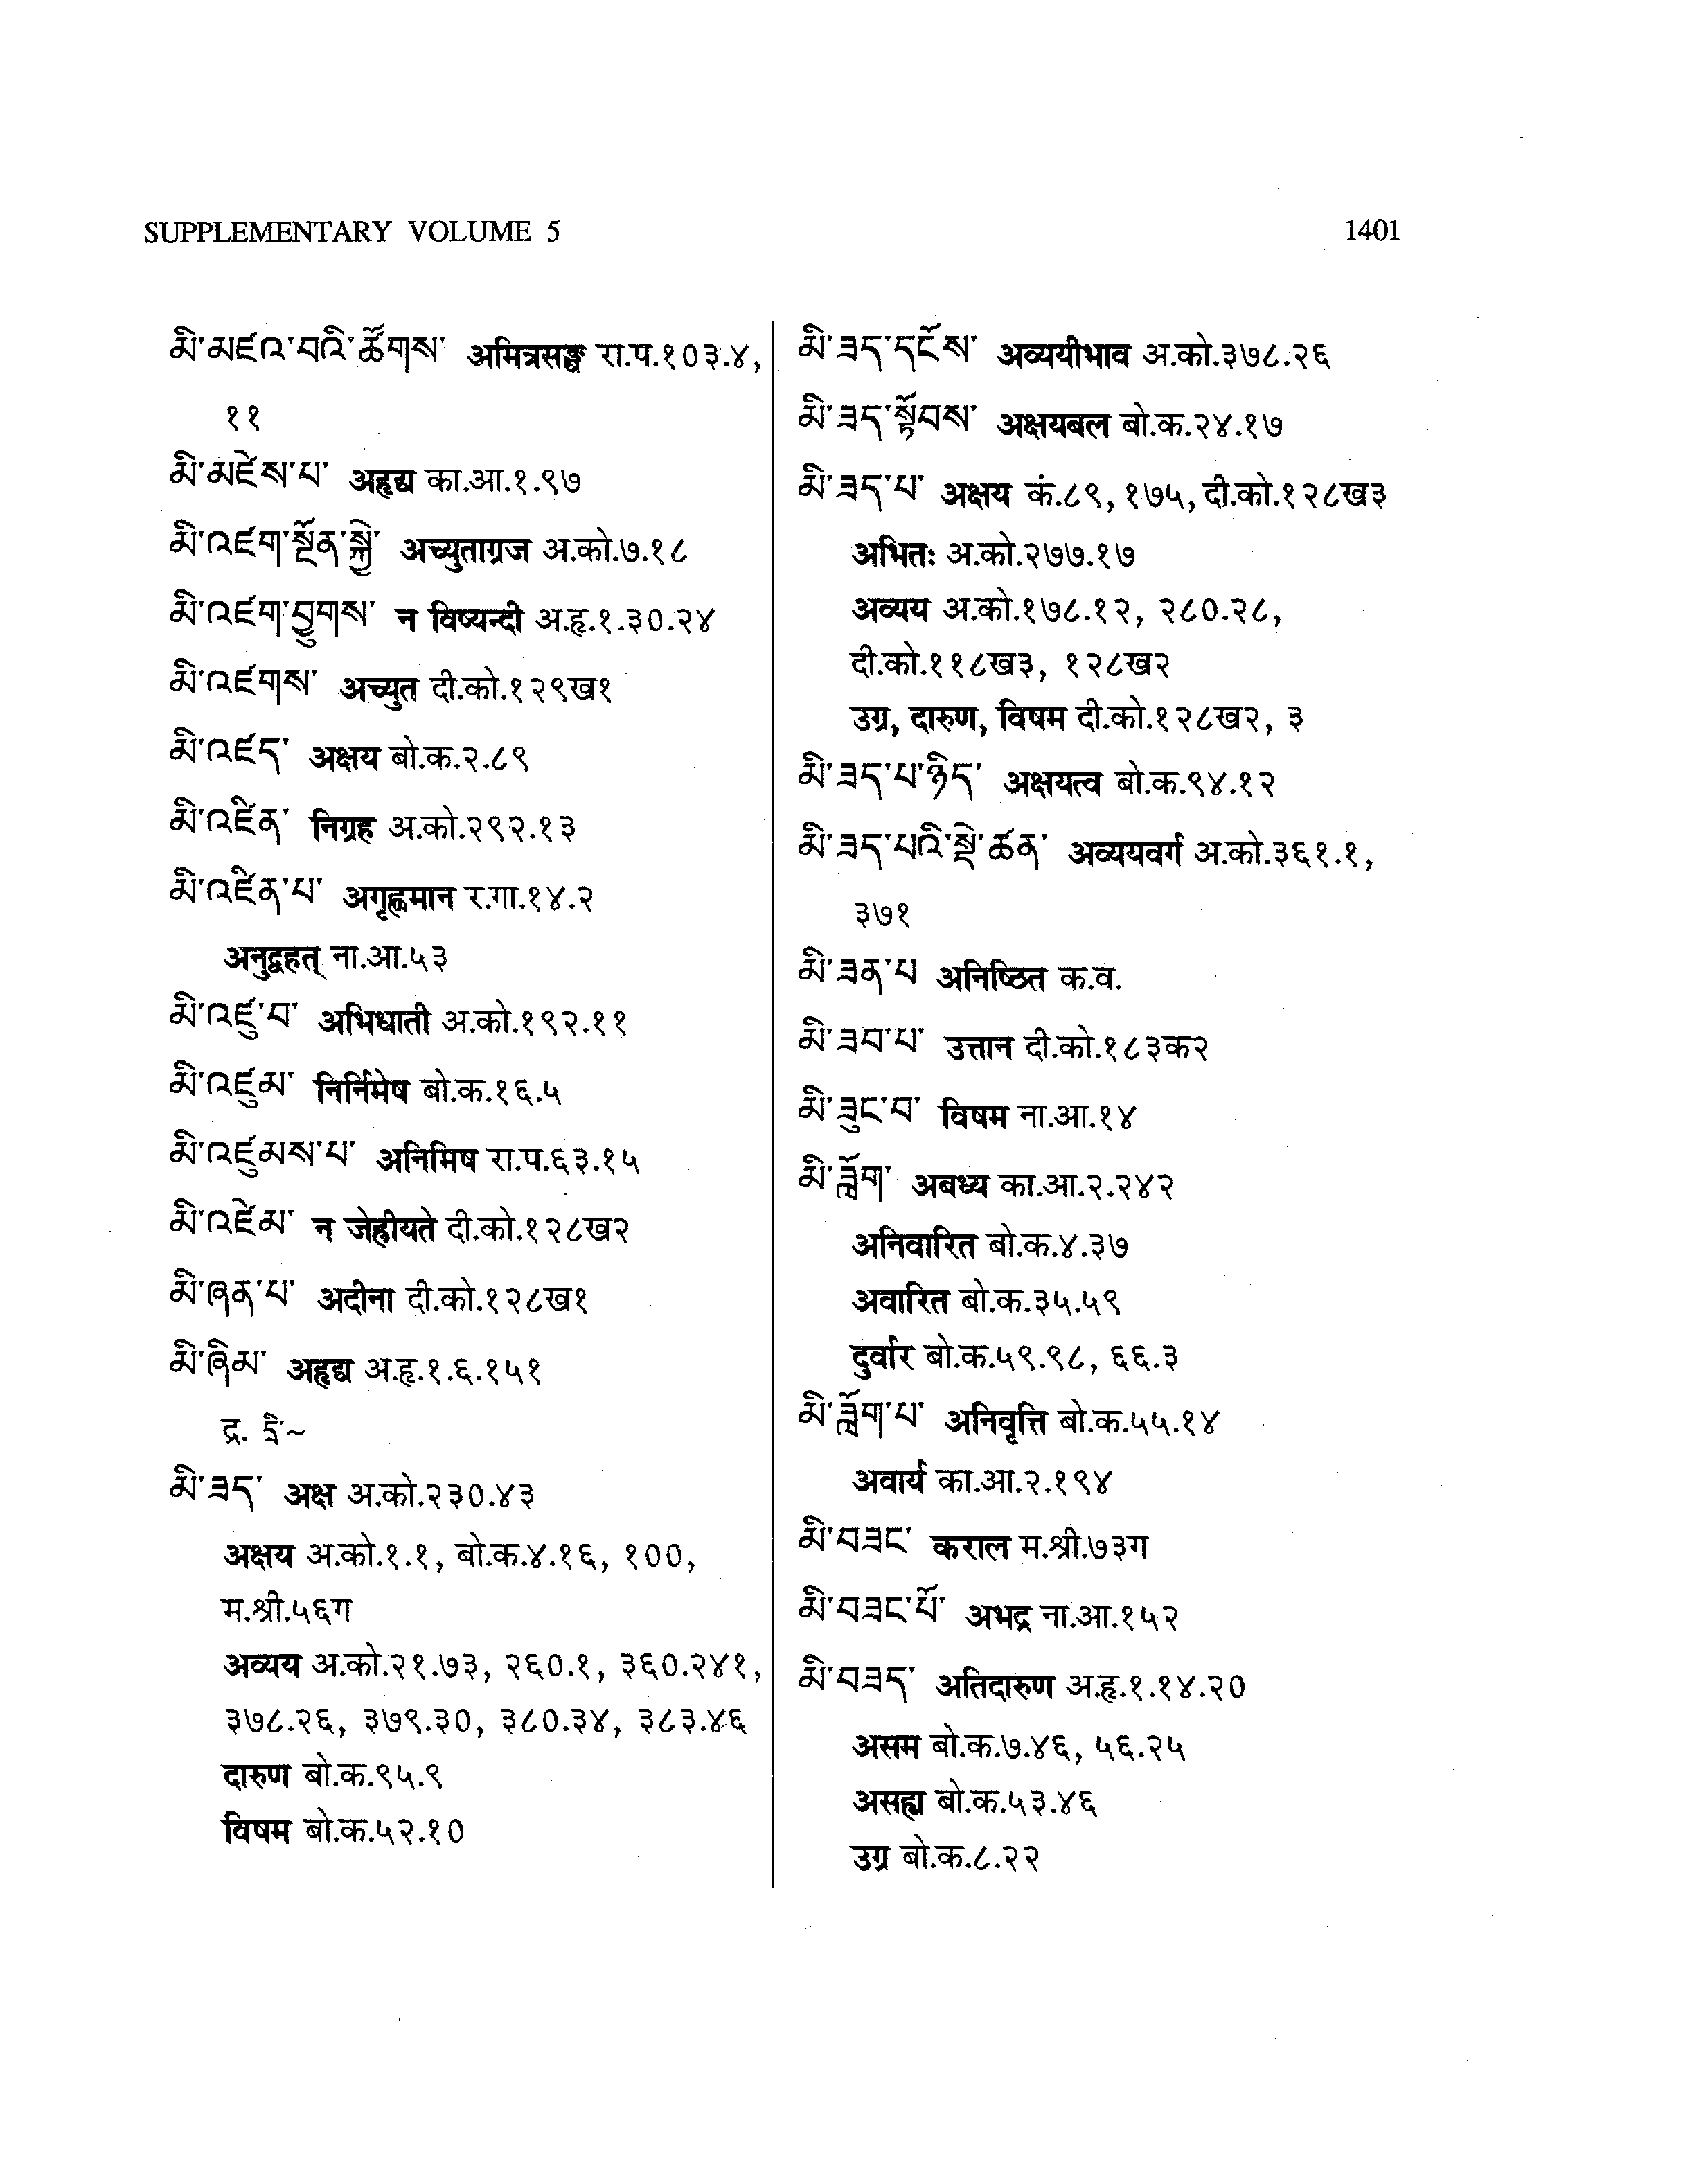 SUPPLEMENTARY VOLUME 5 1401
མི་མཛའ་བའི་ཚོགས་ अमित्रसङ्घ रा.प.१०३.४,
११
མི་མཛེས་པ་ अहृद्य का.आ.१.९७
མི་འཛག་སྔོན་སྐྱེ་ अच्युताग्रज अ.को.७.१८
མི་འཛག་བྱུགས་ न विष्यन्दी अ.हृ.१.३०.२४
མི་འཛགས་ अच्युत दी.को.१२९ख१
མི་འཛད་ अक्षय बो.क.२.८९
མི་འཛིན་ निग्रह अ.को.२९२.१३
མི་འཛིན་པ་ अगृह्णमान र.गा.१४.२
अनुद्वहत् ना.आ.५३
མི་འཛུ་བ་ अभिधाती अ.को.१९२.११
མི་འཛུམ་ निर्निमेष बो.क.१६.५
མི་འཛུམས་པ་ अनिमिष रा.प.६३.१५
མི་འཛེམ་ न जेह्रीयते दी.को.१२८ख२
མི་ཞན་པ་ अदीना दी.को.१२८ख१
མི་ཞིམ་ अहृद्य अ.हृ.१.६.१५१
द्र. དྲི་~
མི་ཟད་ अक्ष अ.को.२३०.४३
अक्षय अ.को.१.१, बो.क.४.१६, १००,
म.श्री.५६ग
अव्यय अ.को.२१.७३, २६०.१, ३६०.२४१,
३७८.२६, ३७९.३०, ३८०.३४, ३८३.४६
दारुण बो.क.९५.९
विषम बो.क.५२.१०
མི་ཟད་དངོས་ अव्ययीभाव अ.को.३७८.२६
མི་ཟད་སྟོབས་ अक्षयबल बो.क.२४.१७
མི་ཟད་པ་ अक्षय कं.८९, १७५, दी.को.१२८ख३
अभितः अ.को.२७७.१७
अव्यय अ.को.१७८.१२, २८०.२८,
दी.को.११८ख३, १२८ख२
उग्र, दारुण, विषम दी.को.१२८ख२, ३
མི་ཟད་པ་ཉིད་ अक्षयत्व बो.क.९४.१२
མི་ཟད་པའི་སྡེ་ཚན་ अव्ययवर्ग अ.को.३६१.१,
३७१
མི་ཟན་པ अनिष्ठित क.व.
མི་ཟབ་པ་ उत्तान दी.को.१८३क२
མི་ཟུང་བ་ विषम ना.आ.१४
མི་ཟློག་ अबध्य का.आ.२.२४२
अनिवारित बो.क.४.३७
अवारित बो.क.३५.५९
दुर्वार बो.क.५९.९८, ६६.३
མི་ཟློག་པ་ अनिवृत्ति बो.क.५५.१४
अवार्य का.आ.२.१९४
མི་བཟང་ कराल म.श्री.७३ग
མི་བཟང་པོ་ अभद्र ना.आ.१५२
མི་བཟད་ अतिदारुण अ.हृ.१.१४.२०
असम बो.क.७.४६, ५६.२५
असह्य बो.क.५३.४६
उग्र बो.क.८.२२